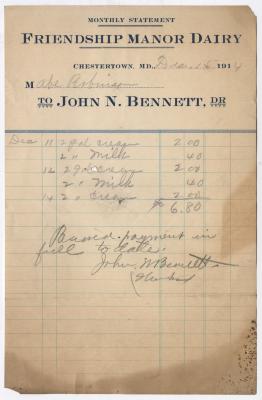 MONTHLY STATEMENT
FRIENDSHIP MANOR DAIRY
CHESTERTOWN, MD., Dec 16 1914
M Abe Robinson
TO JOHN N. BENNETT, DR
Dec 11 2 gal cream 2 00
2 " Milk 40
12 2 gal Cream 2 00
2 " Milk 40
14 2 " Cream 2 00
$ 6.80
payment in
full to date.
John N Bennett